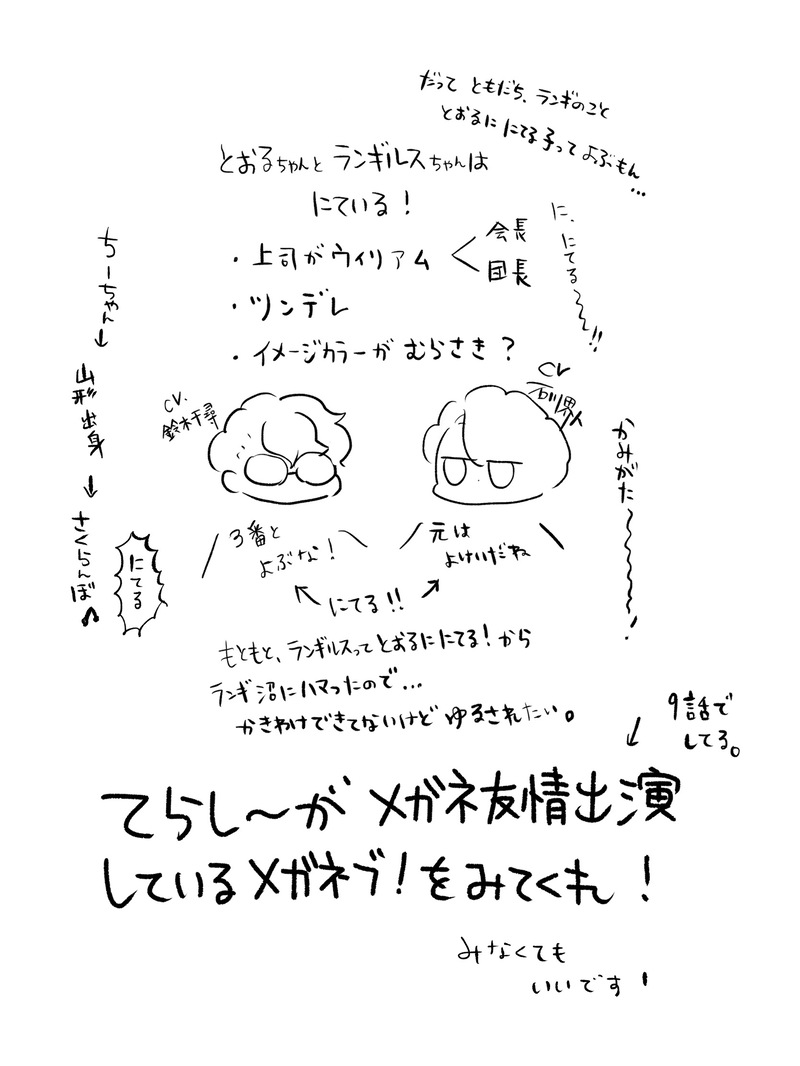 だって ともだち、ランギのこと
とおるに にてる子って よぶもん…
とおるちゃんと ランギルスちゃんは
にている!
・上司がウィリアム
会長
団長
・ツンデレ
・イメージカラーが むらさき?
に、にてる〜〜〜!!
ちーちゃん
↓
山形出身
↓
さくらんぼ♪
にてる
CV.
鈴木千尋
CV
石川界人
かみがた〜〜〜〜!
3番と
よぶな!
元は
よけいだね
にてる!!
もともと、ランギルスって とおるに にてる!から
ランギ沼にハマったので…
かきわけできてないけど ゆるされたい。
9話で
してる。
てらし〜が メガネ友情出演
しているメガネブ!をみてくれ!
みなくても
いいです!